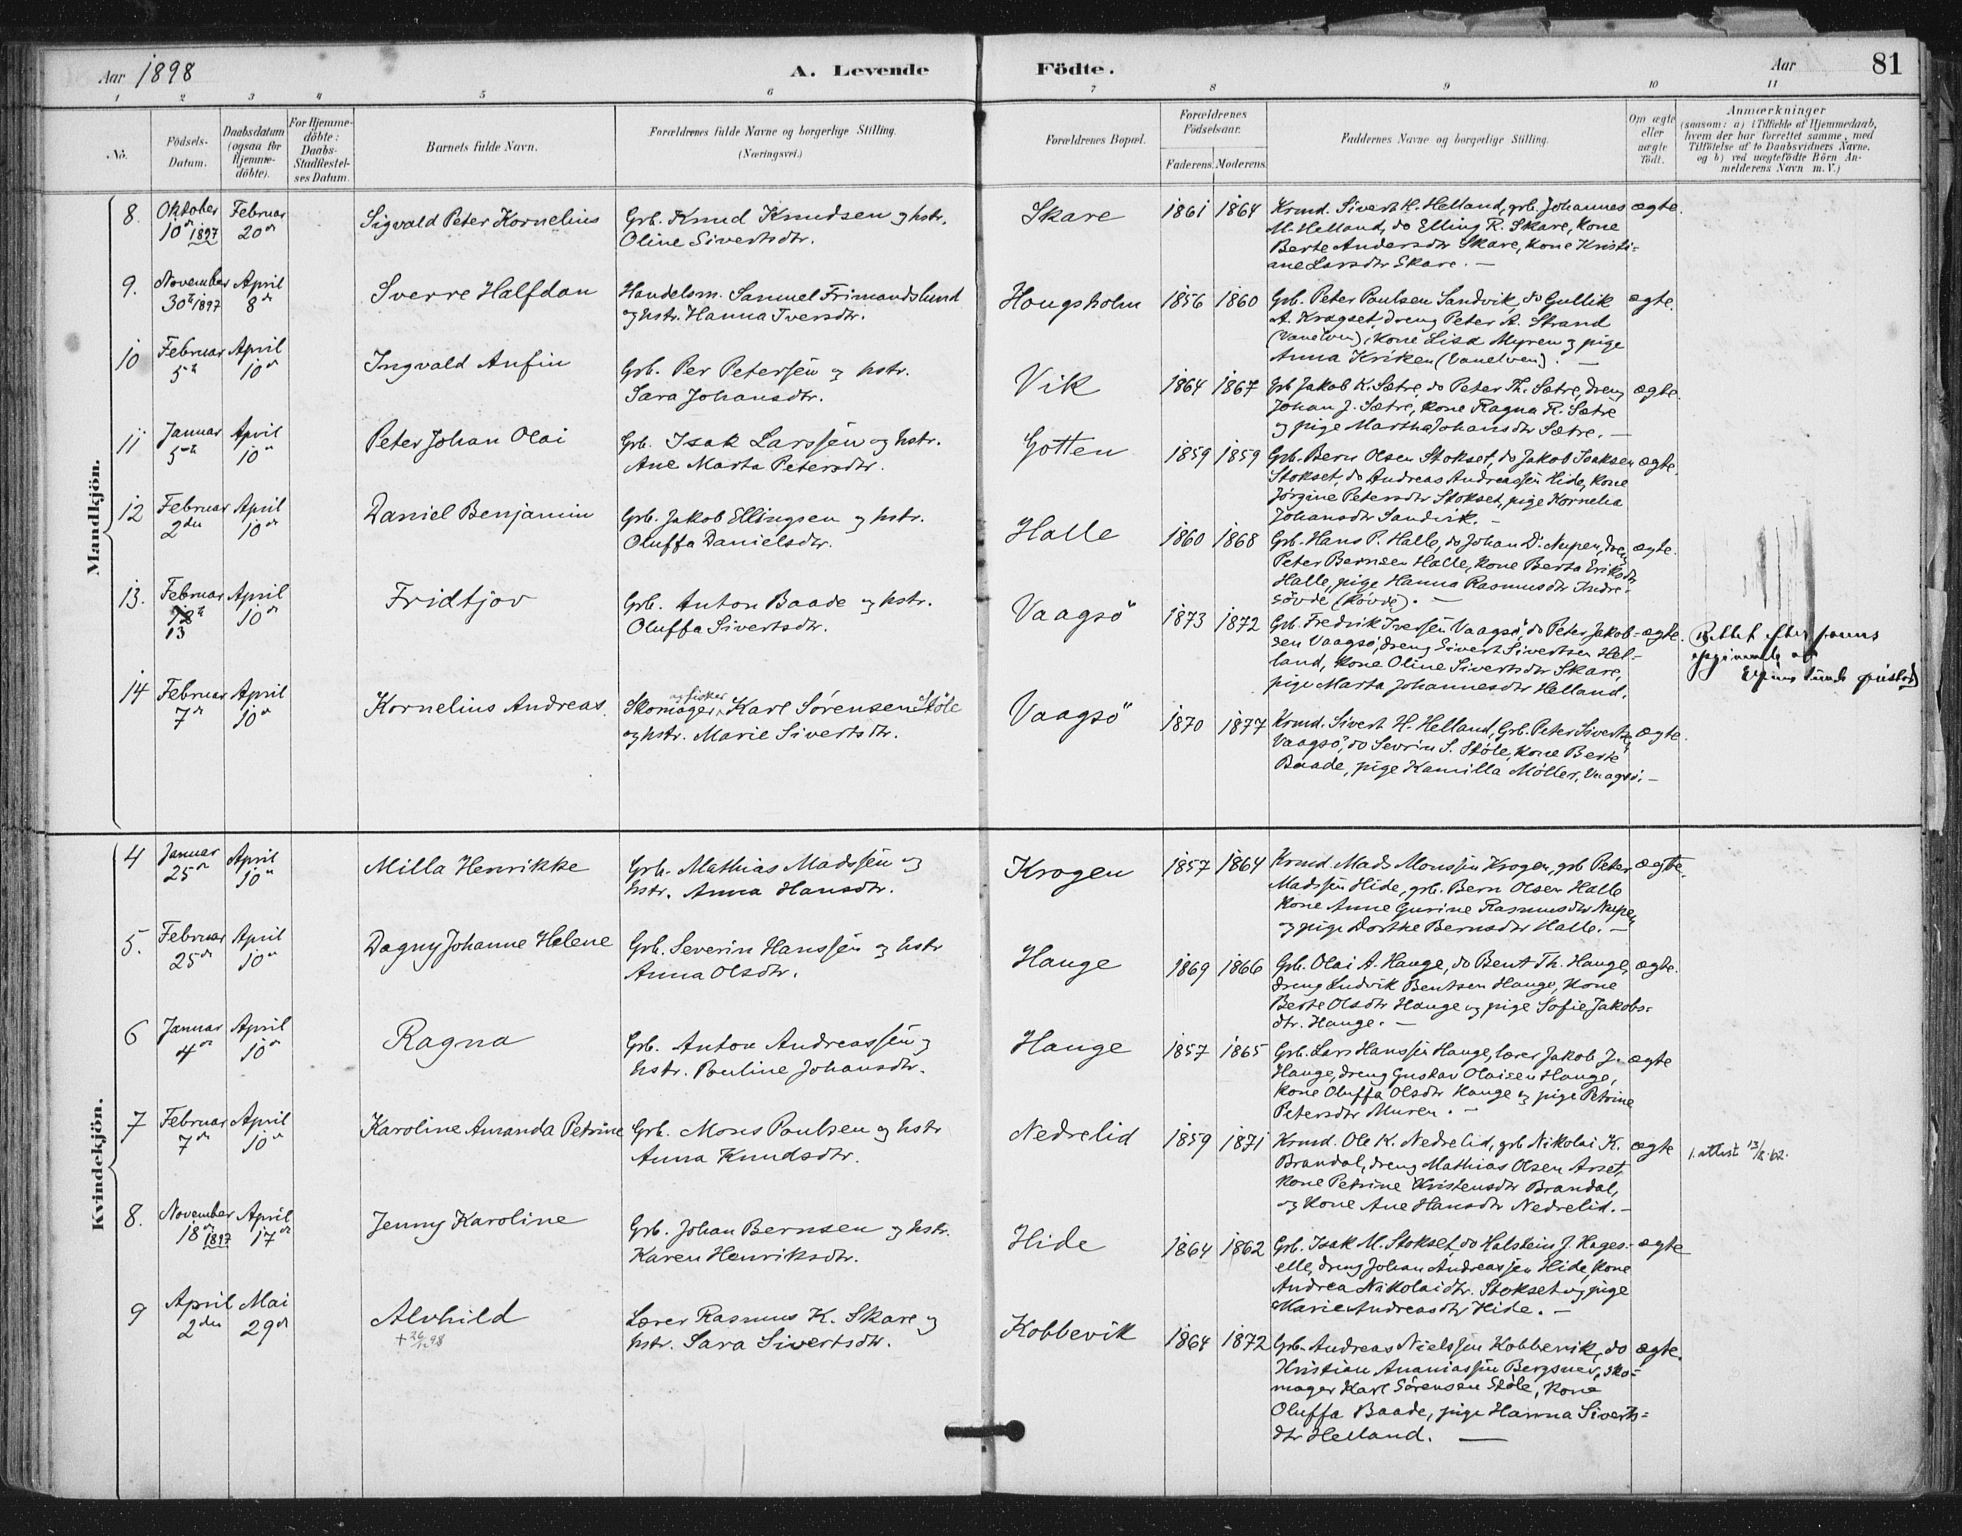 Aar 1898
A. Levende Födte.
Aar
81
1 2 3 4 5 6 7 8 9 10 11
No.
Födsels-Datum.
Daabsdatum (ogsaa for Hjemme-döbte).
For Hjemme-döbte: Daabs-Stadfæstel-ses Datum.
Barnets fulde Navn.
Forældrenes fulde Navne og borgerlige Stilling.
(Næringsvei.)
Forældrenes Bopæl.
Forældrenes Födselsaar.
Faderens. Moderens.
Faddernes Navne og borgerlige Stilling.
Om ægte eller uægte Födt.
Anmærkninger
(saasom: a) i Tilfælde af Hjemmedaab,
hvem der har forrettet samme, med
Tilföielse af to Daabsvidners Navne.
og b) ved uægtefödte Börn An-
melderens Navn m. V.)
Mandkjön.
8. Oktober 10de 1897 Februar 20de Sigvald Peter Kornelius Grb. Knud Knudsen og hstr.
Oline Sivertsdtr.
Skare 1861 1864 Krmd. Sivert H. Helland, grb. Johannes ægte.
M. Helland, do Elling R. Skare, Kone
Berte Andersdtr Skare, Kone Kristi-
ane Larsdtr Skare. —
9. November 30te 1897 April 8de Sverre Halfdan Handelsm. Samuel Frimandslund
og hstr. Hanna Iversdtr.
Hougsholm 1856 1860 Grb. Peter Poulsen Sandvik, do Gullik ægte.
A. Kragset, dreng Peter A. Strand
(Vanelven), Kone Lisa Myren og pige
Anna Kriken (Vanelven). —
10 Februar 5te April 10de Ingvald Anfin Grb. Per Petersen og hstr.
Sara Johansdtr.
Vik 1864 1867 Grb Jakob K. Sætre, do Peter Th. Sætre, dreng ægte.
Johan J. Sætre, Kone Ragna R. Sætre
og pige Martha Johansdtr Sætre. —
11 Januar 5te April 10de Peter Johan Olai Grb. Isak Larssen og hstr.
Ane Marta Petersdtr.
Gotten 1859 1859 Grb. Bern Olsen Stokset, do Jakob Isaksen ægte.
Stokset, do Andreas Andreassen Hide, Kone
Jörgine Petersdtr Stokset, pige Kornelia
Johansdtr Sandvik. —
12 Februar 2den April 10de Daniel Benjamin Grb. Jakob Ellingsen og hstr.
Oluffa Danielsdtr.
Halle 1860 1868 Grb. Hans P. Halle, do Johan D. Nupen, dreng ægte.
Peter Bernsen Halle, Kone Berta Eriksdtr
Halle, pige Hanna Rasmusdtr Indre-
sövde (Rovde). —
13. Februar 13 April 10de Fridtjov Grb. Anton Baade og hstr.
Oluffa Sivertsdtr.
Vaagsö 1873 1872 Grb. Fredrik Iversen Vaagsö, do Peter Jakob- ægte.
sen Vaagsö, dreng Sivert Sivertsen Hel-
land, Kone Oline Sivertsdtr Skare,
pige Marta Johannesdtr Helland.
Rettet efter
14 Februar 7de April 10de Kornelius Andreas. Skomager og fisker Karl Sørensen Støle
og hstr. Marie Sivertsdtr.
Vaagsö 1870 1877 Krmd. Sivert H. Helland, Grb. Peter Sivertsen ægte.
Vaagsö, do Sevrin S. Støle, Kone Berte
Baade, pige Kamilla Möller, Vaagsö. —
Kvindekjön.
4 Januar 25de April 10de Milla Henrikke Grb. Mathias Madssen og
hstr. Anna Hansdtr.
Krogen 1857 1864 Krmd. Mads Monssen Krogen, grb Peter ægte.
Madssen Hide, grb. Bern Olsen Halle
Kone Anne Gurine Rasmusdtr Nupen
og pige Dorthe Bernsdtr Halle. —
5. Februar 25de April 10de Dagny Johanne Helene Grb. Severin Hanssen og hstr
Anna Olsdtr.
Hauge 1869 1866 Grb. Olai A. Hauge, do Bent Th. Hauge, ægte.
dreng Ludvik Bentsen Hauge, Kone
Berte Olsdtr Hauge og pige Sofie Jakobs-
dtr. Hauge. —
6 Januar 4de April 10de Ragna Grb. Anton Andreassen og
hstr. Pauline Johansdtr.
Hauge 1857 1865 Grb. Lars Hanssen Hauge, lærer Jakob J. ægte
Hauge, dreng Gustav Olaisen Hauge,
Kone Oluffa Olsdtr Hauge og pige Petrine
Petersdtr Muren. —
7 Februar 7de April 10de Karoline Amanda Petrine Grb. Mons Poulsen og hstr
Anna Knudsdtr.
Nedrelid 1859 1871 Krmd. Ole K. Nedrelid, grb Nikolai K. ægte
Brandal, dreng Mathias Olsen Arset,
Kone Petrine Kristensdtr Brandal,
og Kone Ane Hansdtr Nedrelid. —
1. attest 13/8.62.
8. November 18de 1897 April 17de Jenny Karoline Grb. Johan Bernsen og hstr.
Karen Henriksdtr.
Hide 1864 1862 Grb. Isak M. Stokset, do Halstein J. Hages- ægte
elle, dreng Johan Andreassen Hide, Kone
Andrea Nikolaidtr. Stokset og pige
Marie Andreasdtr Hide. —
9 April 2den Mai 29de Alvhild Lærer Rasmus K. Skare og
hstr. Sara Sivertsdtr.
Kobbevik 1864 1872 Grb. Andreas Nielssen Kobbevik, do ægte.
Kristian Ananiassen Bergsnev, sko-
mager Karl Sörensen Støle, Kone
Oluffa Baade, pige Hanna Siverts-
dtr Helland. —